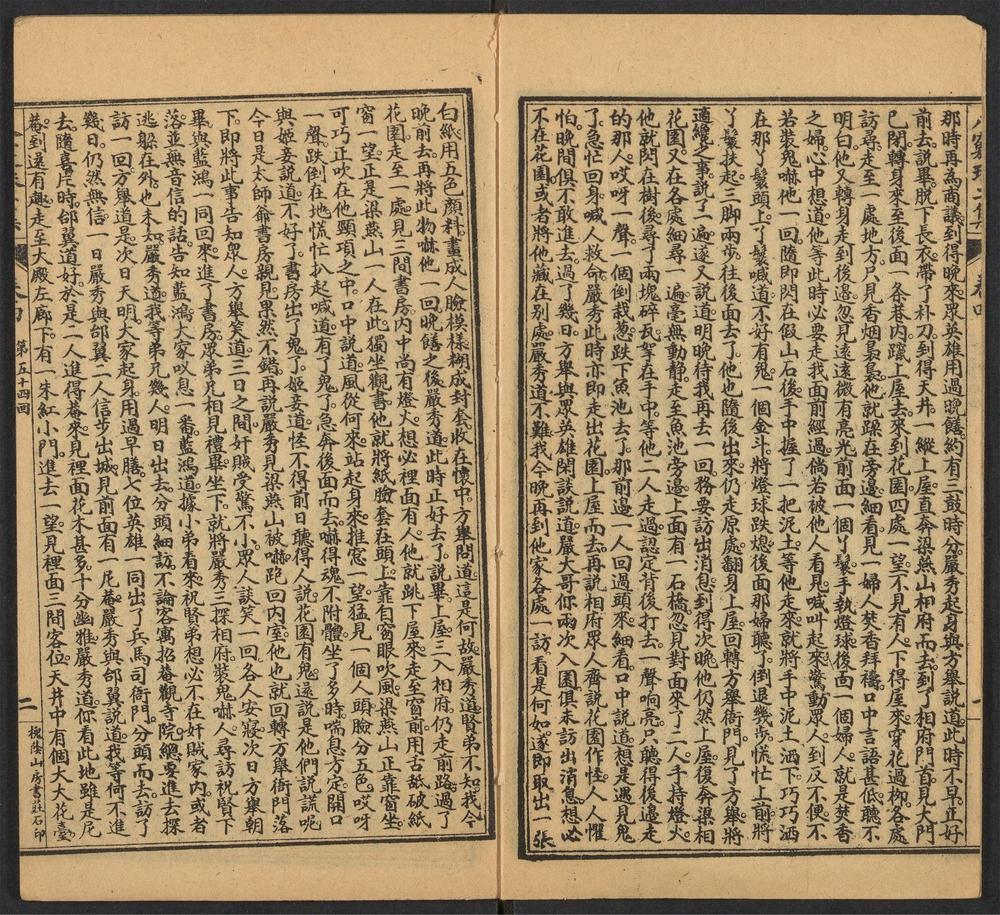 那時再為商議到得晚來眾英雄用過晚饍約有三鼓時分嚴秀起身與方舉說道此時不早正好
前去說畢脫下長衣帶了朴刀到得天井一縱上屋直奔梁燕山相府而去到了相府門首見大門
已閉轉身來至後面一条巷內躧上屋去來到花園四處一望不見有人下得屋來穿花過柳各處
訪尋走至一處地方只見香烟裊裊他就躲在旁邊細看見一婦人焚香拜禱口中言語甚低聽不
明白他又轉身走到後邊忽見遠遠微有亮光前面一個丫鬟手執燈球後面一個婦人就是焚香
之婦心中想道他等此時必要走我面前經過倘若被他人看見喊叫起來驚動眾人到反不便不
若裝鬼嚇他一回隨即閃在假山石後手中握了一把泥土等他走來就將手中泥土洒下巧巧洒
在那丫鬟頭上丫鬟喊道不好有鬼一個金斗將燈球跌熄後面那婦聽了倒退幾步慌忙上前將
丫鬟扶起三脚兩步往後面去了他也隨後出來仍走原處翻身上屋回轉方舉衙門見了方舉將
適纔之事說了一遍遂又說道明晚待我再去一回務要訪出消息到得次晚他仍然上屋後奔梁相
花園又在各處細尋一遍毫無動靜走至魚池旁邊上面有一石橋忽見對面來了二人手持燈火
他就閃在樹後尋了兩塊碎瓦拏在手中等他二人走過認定背後打去一聲响亮只聽得後邊走
的那人哎呀一聲一個倒栽葱跌下魚池去了那前邊一人回過頭來細看口中說道想是遇見鬼
了急忙回身喊人救命嚴秀此時亦即走出花園上屋而去再說相府眾人齊說花園作怪人人懼
怕晚間俱不敢進去過了幾日方舉與眾英雄閑談說道嚴大哥你兩次入園俱未訪出消息想必
不在花園或者將他藏在別處嚴秀道不難我今晚再到他家各處一訪看是何如遂即取出一張
白紙用五色顏料畫成人臉模樣糊成封套收在懷中方舉問道這是何故嚴秀道賢弟不知我今
晚前去再將此物嚇他一回晚饍之後嚴秀道此時正好去了說畢上屋三入相府仍走前路過了
花園走至一處見三間書房內中尚有燈火想必裡面有人他就跳下屋來走至窗前用舌舐破紙
窗一望正是梁燕山一人在此獨坐觀書他就將紙臉套在頭上靠自窗眼吹風梁燕山正靠窗坐
可巧正吹在他頸項之中口中說道風從何來站起身來推窗一望猛見一個人頭臉分五色哎呀
一聲跌倒在地慌忙扒起喊道有了鬼了急奔後面而去嚇得魂不附體坐了多時喘息方定開口
與姬妾說道不好了書房出了鬼了姬妾道怪不得前日聽得人說花園有鬼還說是他們說謊呢
今日是太師爺書房親見果然不錯再說嚴秀見梁燕山被嚇跑回內室他也就回轉方舉衙門落
下即將此事告知眾人方舉笑道三日之間奸賊受驚不小眾人談笑一回各人安寢次日方舉朝
畢與藍鴻一同回來進了書房眾弟兄相見禮畢坐下就將嚴秀三探相府裝鬼嚇人尋訪祝賢下
落並無音信的話告知藍鴻大家叹息一番藍鴻道據小弟看來祝賢弟想必不在奸賊家內或者
逃躲在外也未知嚴秀道我等弟兄幾人明日出去分頭細訪不論客寓招菴觀寺院總要進去探
訪一回方舉道是次日天明大家起身用過早膳七位英雄一同出了兵馬司衙門分頭而去訪了
幾日仍然無信一日嚴秀與邰翼二人信步出城見前面有一尼菴嚴秀與邰翼說道我等何不進
去隨喜片時邰翼道好於是二人進得菴來見裡面花木甚多十分幽雅嚴秀道你看此地雖是尼
菴到還有趣走至大殿左廊下有一朱紅小門進去一望見裡面三間客位天井中有個大大花臺
第五十四回
二
槐蔭山房書莊石印